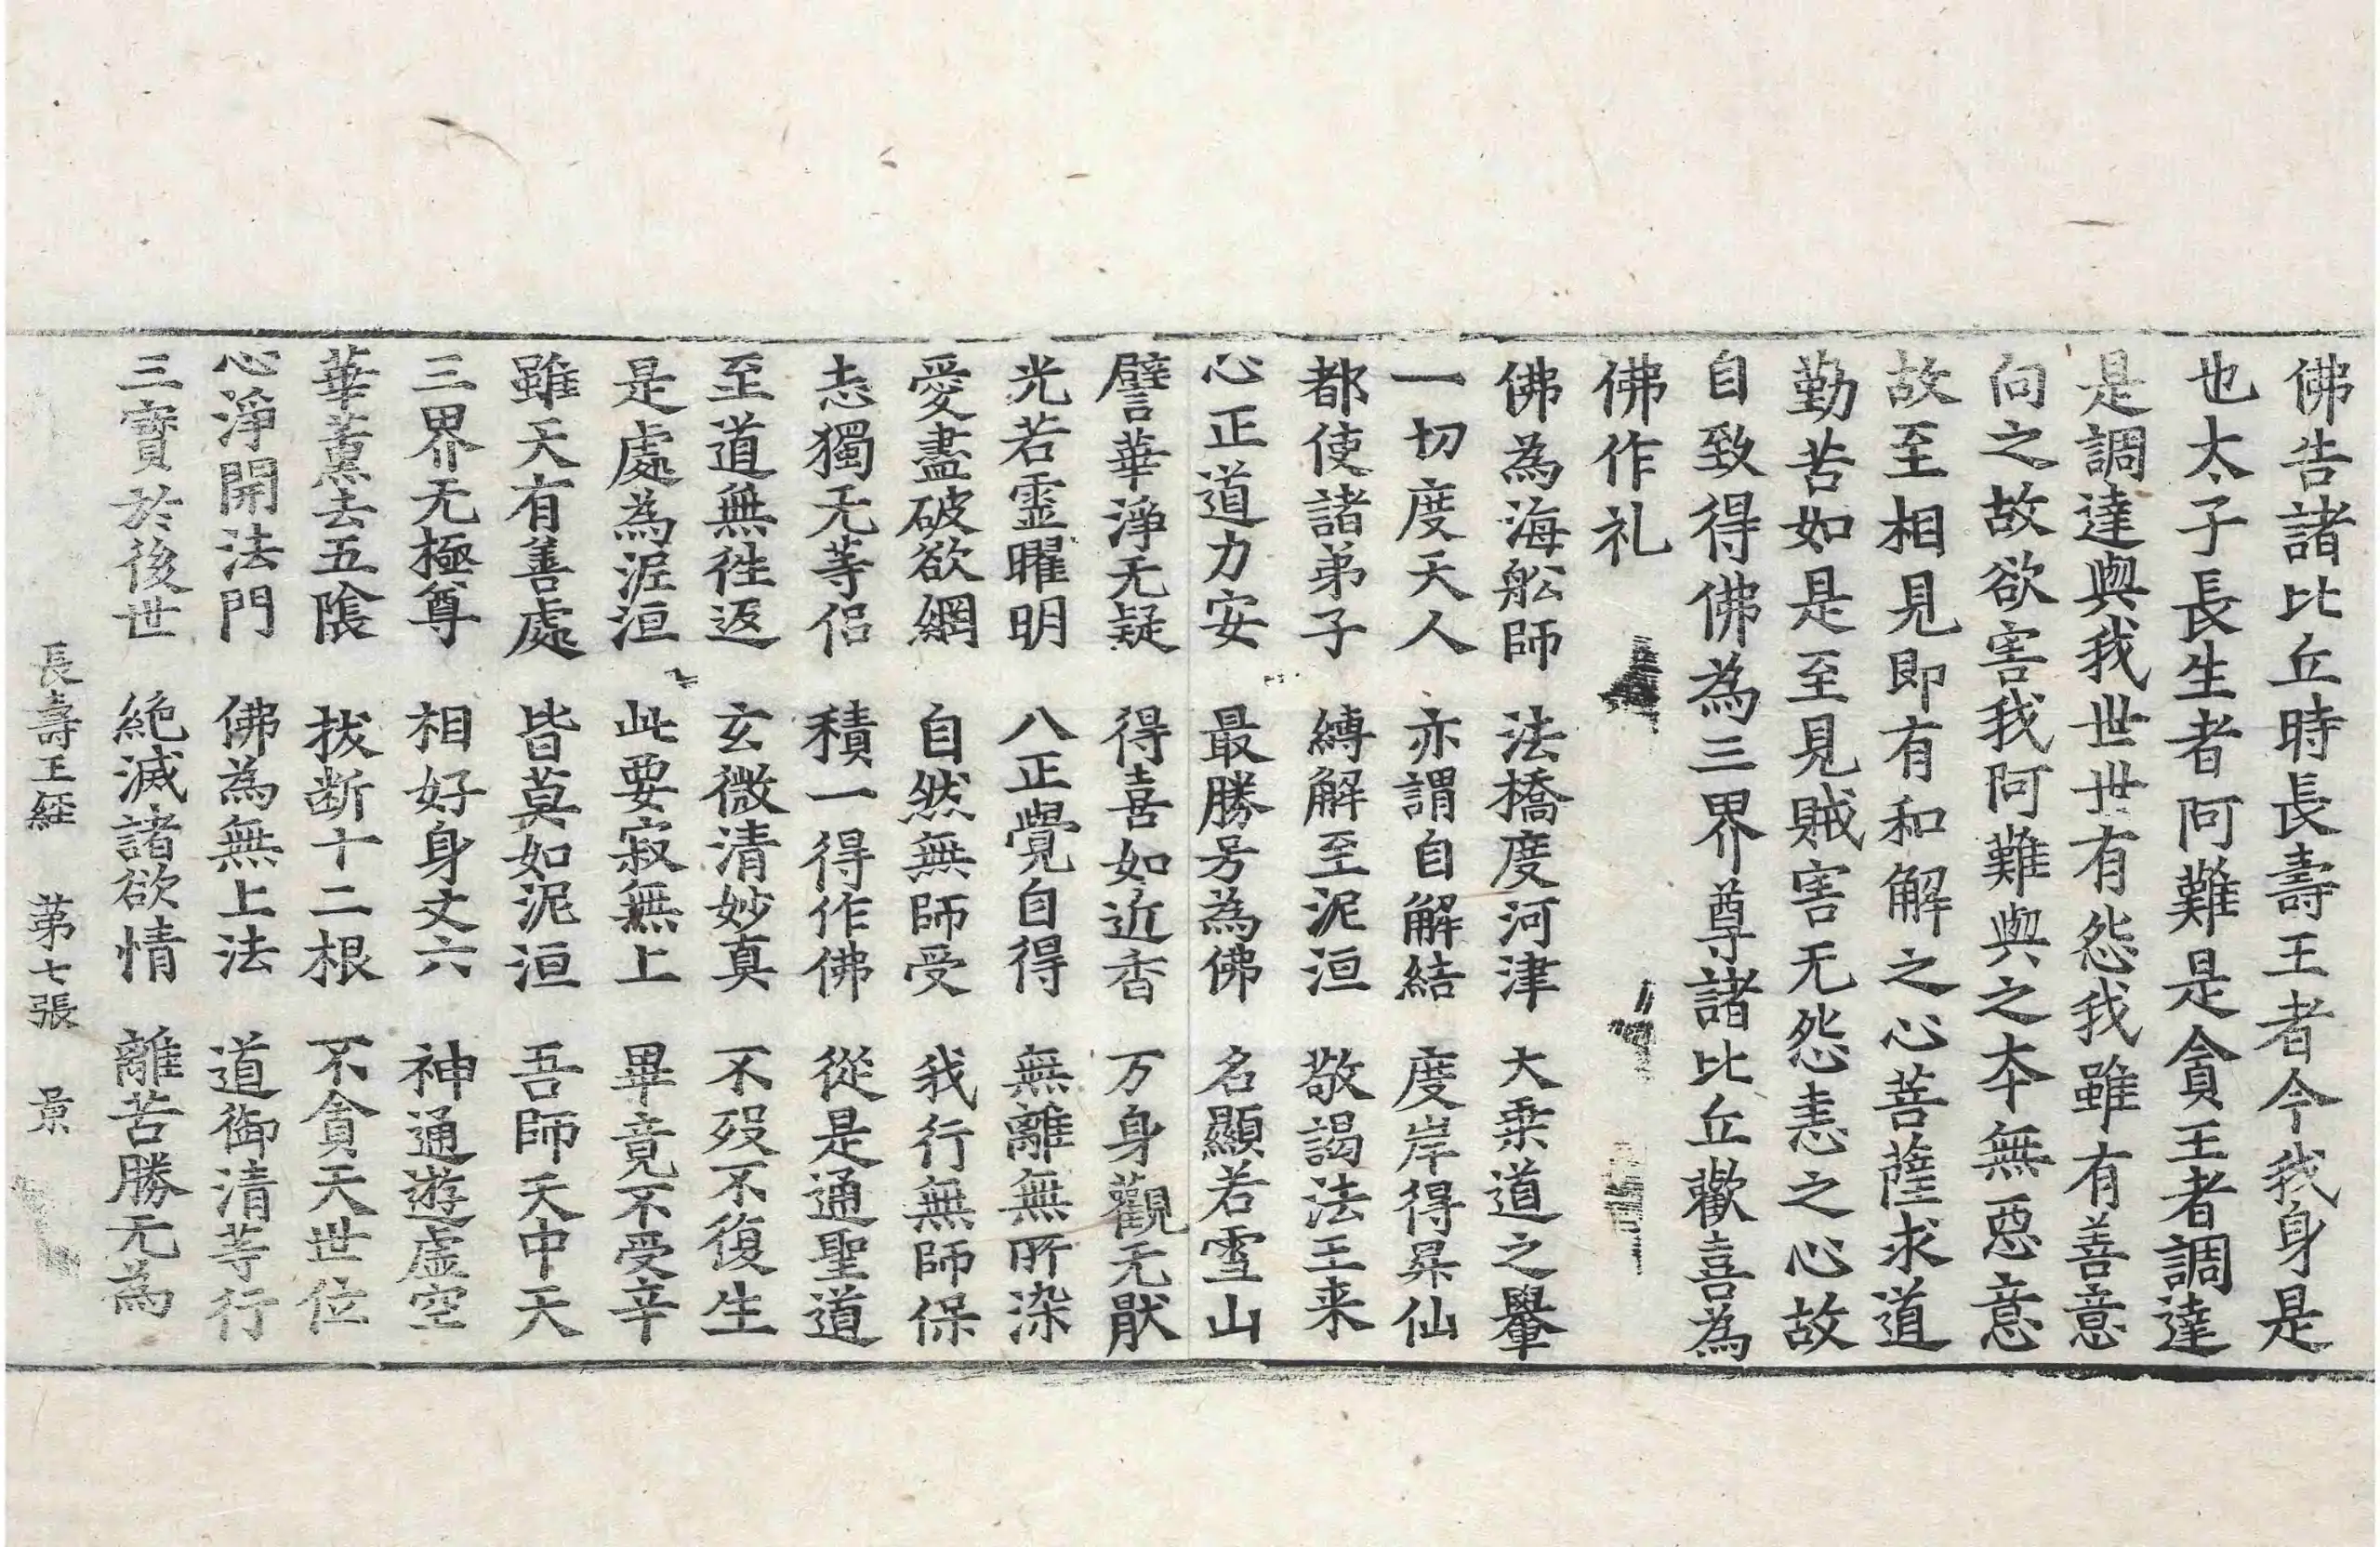 佛告諸比丘時長壽王者今我身是
也太子長生者阿難是貪王者調達
是調達與我世世有怨我雖有善意
向之故欲害我阿難與之本無惡意
故至相見即有和解之心菩薩求道
勤苦如是至見賊害无怨恚之心故
自致得佛為三界尊諸比丘歡喜為
佛作礼
佛為海舩師 法橋度河津 大乗道之轝
一切度天人 亦謂自解結 度岸得昇仙
都使諸弟子 縛解至泥洹 敬謁法王来
心正道力安 最勝号為佛 名顯若雪山
譬華淨无疑 得喜如近香 万身觀无猒
光若霊曜明 八正覺自得 無離無所染
愛盡破欲網 自然無師受 我行無師保
志獨无等侣 積一得作佛 從是通聖道
至道無徃返 玄微清妙真 不殁不復生
是處為泥洹 此要寂無上 畢竟不受辛
雖天有善處 皆莫如泥洹 吾師天中天
三界无極尊 相好身丈六 神通遊虛空
華薫去五陰 拔断十二根 不貪天世位
心淨開法門 佛為無上法 道御清等行
三寳於後世 絶滅諸欲情 離苦勝无為
長壽王經 第七張 景